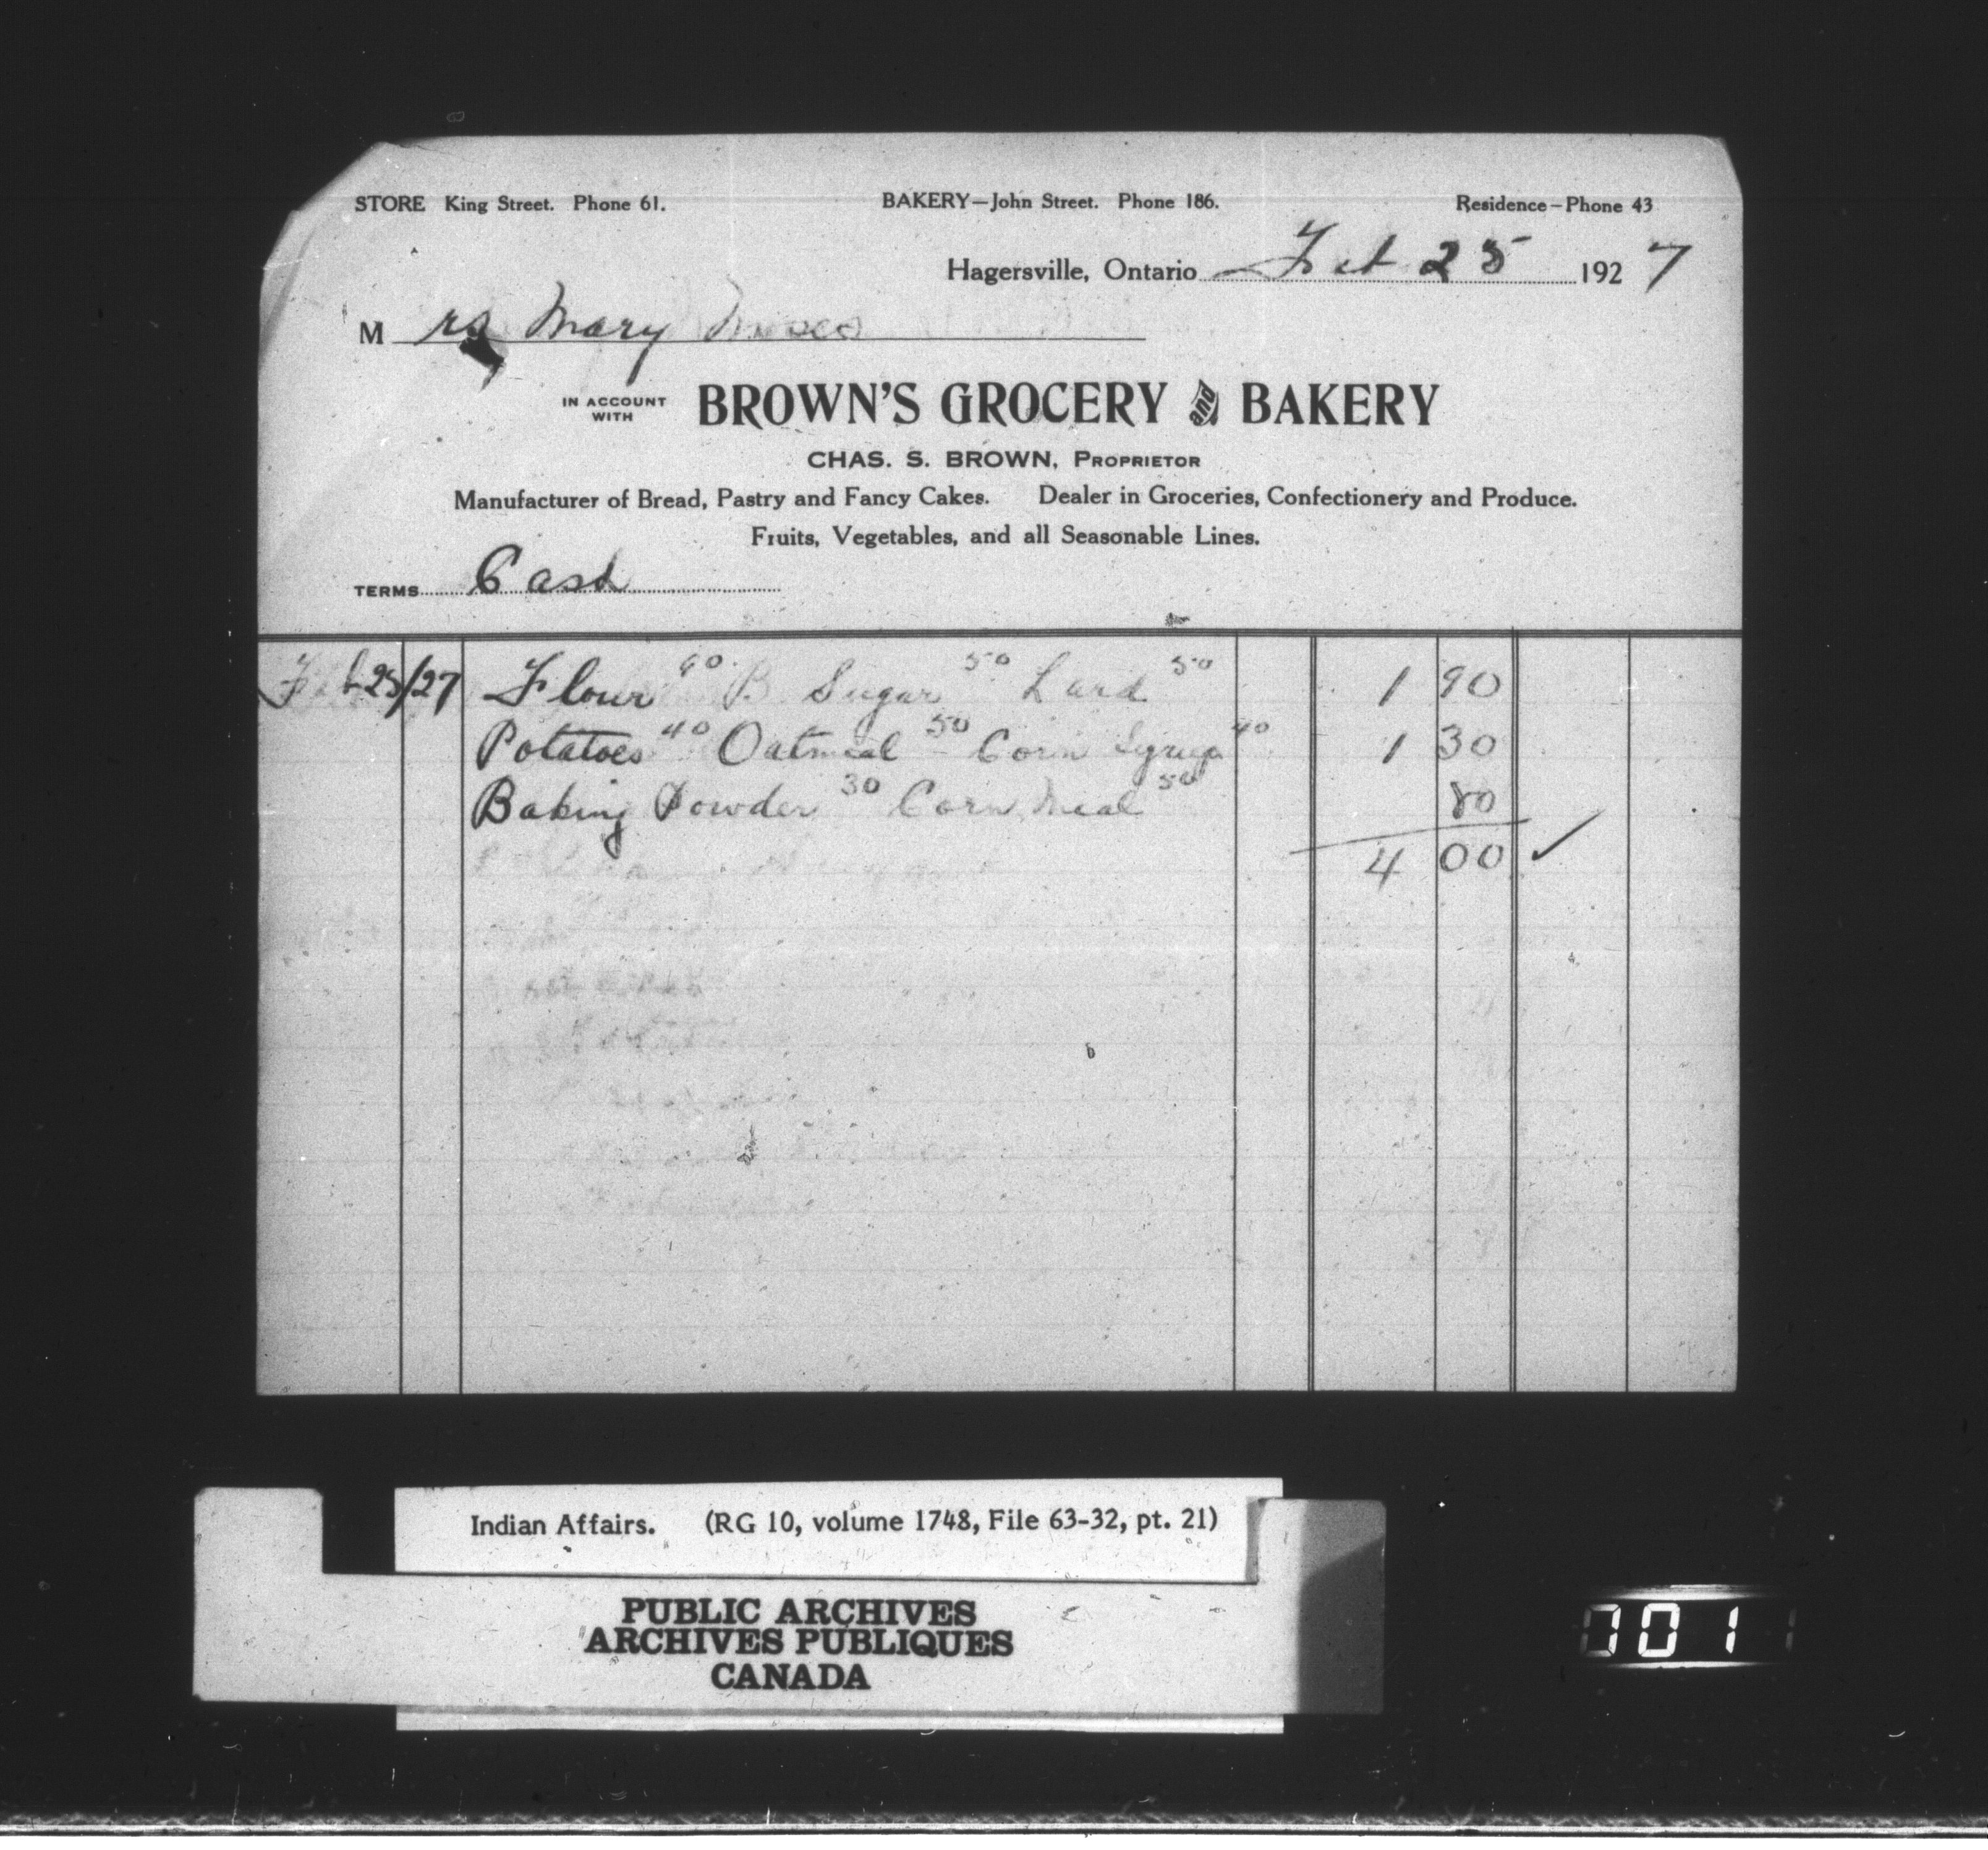 STORE King Street. Phone 61. BAKERY—John Street. Phone 186. Residence—Phone 43
Hagersville, Ontario Feb 25 1927
Mrs Mary Moses
IN ACCOUNT WITH BROWN'S GROCERY and BAKERY
CHAS. S. BROWN, PROPRIETOR
Manufacturer of Bread, Pastry and Fancy Cakes. Dealer in Groceries, Confectionery and Produce.
Fruits, Vegetables, and all Seasonable Lines.
TERMS Cash
Feb 25/27 Flour 90 B Sugar 50 Lard 50 1 90
Potatoes 40 Oatmeal 50 Corn Syrup 40 1 30
Baking Powder 30 Corn Meal 50 80
4 00 ✓
Indian Affairs. (RG 10, volume 1748, File 63-32, pt. 21)
PUBLIC ARCHIVES
ARCHIVES PUBLIQUES
CANADA